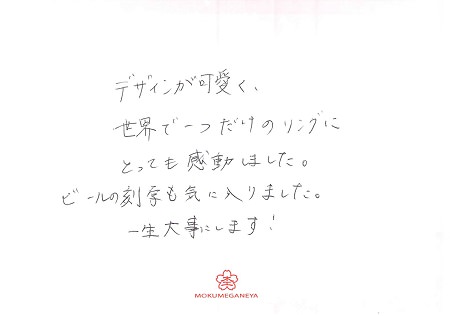 デザインが可愛く、
世界で一つだけのリングに
とっても感動しました。
ビールの刻字も気に入りました。
一生大事にします!
MOKUMEGANEYA